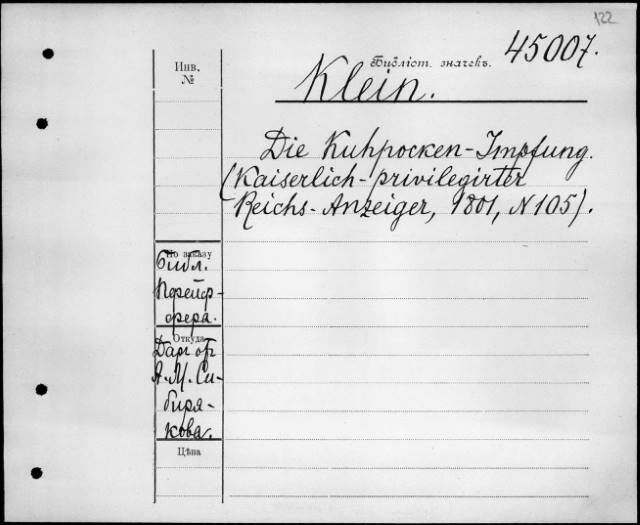 122
45007.
Инв.
№
Библіот. значекъ.
Klein.
Die Kuhpocken-Impfung.
(Kaiserlich-privilegirter
Reichs-Anzeiger, 1801, N 105).
По заказу
Библ.
Порейф-
фера.
Откуда
Даръ от
А. М. Си-
биря-
кова.
Цѣна